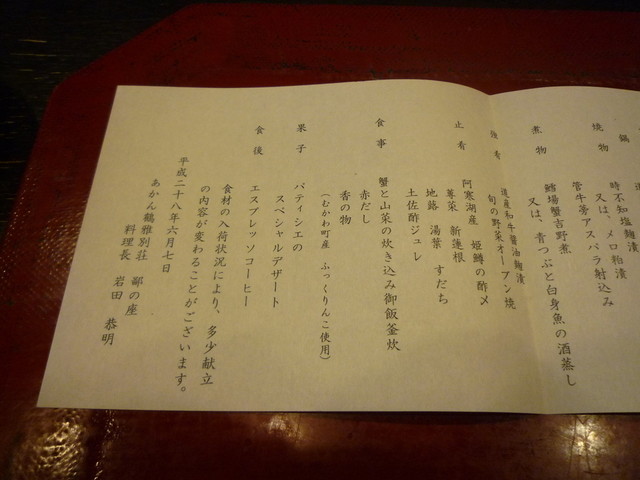 鍋
焼物
時不知塩麹漬
又は、メロ粕漬
管牛蒡アスパラ射込み
煮物
鱈場蟹吉野煮
又は、青つぶと白身魚の酒蒸し
強肴
道産和牛醤油麹漬
旬の野菜オーブン焼
止肴
阿寒湖産 姫鱒の酢〆
蓴菜 新蓮根
地蕗 湯葉 すだち
土佐酢ジュレ
食事
蟹と山菜の炊き込み御飯釜炊
赤だし
香の物
（むかわ町産 ふっくりんこ使用）
果子
パティシエの
スペシャルデザート
食後
エスプレッソコーヒー
食材の入荷状況により、多少献立
の内容が変わることがございます。
平成二十八年六月七日
あかん鶴雅別荘 鄙の座
料理長 岩田 恭明